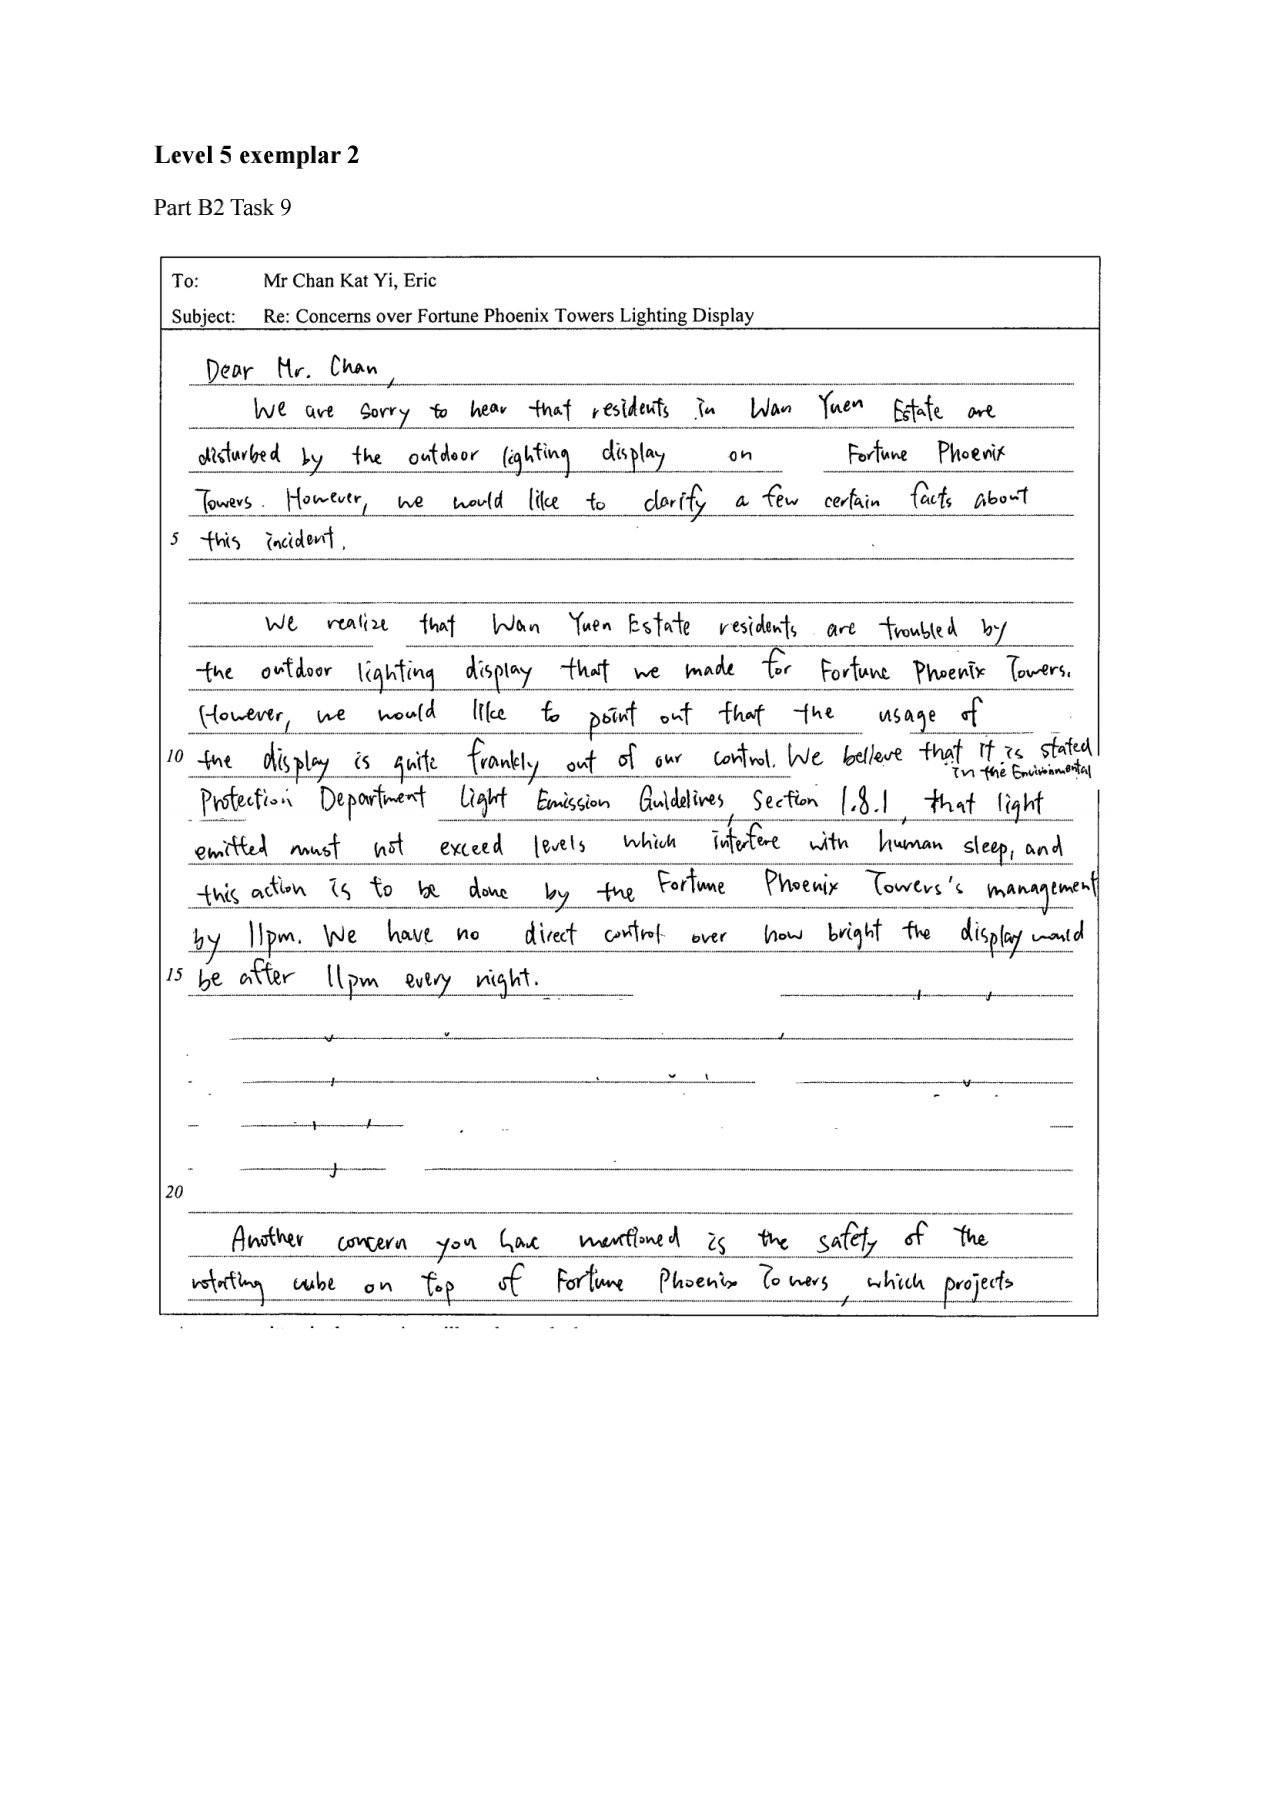 Level 5 exemplar 2
Part B2 Task 9
To: Mr Chan Kat Yi, Eric
Subject: Re: Concerns over Fortune Phoenix Towers Lighting Display
Dear Mr. Chan,
We are sorry to hear that residents in Wan Yuen Estate are
disturbed by the outdoor lighting display on Fortune Phoenix
Towers. However, we would like to clarify a few certain facts about
5 this incident.
We realize that Wan Yuen Estate residents are troubled by
the outdoor lighting display that we made for Fortune Phoenix Towers.
However, we would like to point out that the usage of
10 the display is quite frankly out of our control. We believe that it is stated
in the Environmental
Protection Department Light Emission Guidelines, Section 1.8.1, that light
emitted must not exceed levels which interfere with human sleep, and
this action is to be done by the Fortune Phoenix Towers's management
by 11pm. We have no direct control over how bright the display would
15 be after 11pm every night.
20
Another concern you have mentioned is the safety of the
rotating cube on top of Fortune Phoenix Towers, which projects